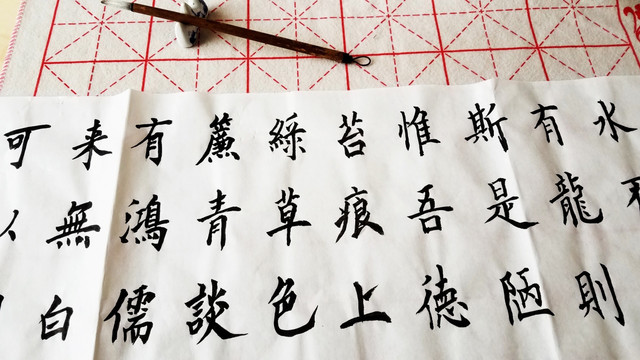 水不
有龍則
斯是陋
惟吾德
苔痕上
綠草色
簾青談
有鴻儒
来無白
可以